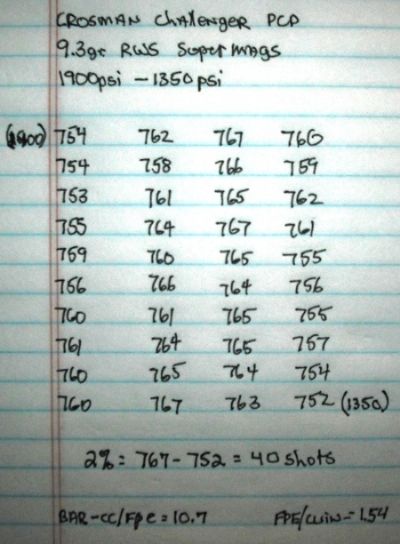 CROSMAN CHAllENGER PCP
9.3gr RWS SuperMags
1900psi - 1350psi
(1900) 754 762 767 760
754 758 766 759
753 761 765 762
755 764 767 761
759 760 765 755
756 766 764 756
760 761 765 755
761 764 765 757
760 765 764 754
760 767 763 752 (1350)
2% = 767 - 752 = 40 shots
BAR-CC/Fpe = 10.7 FPE/CUIN = 1.54